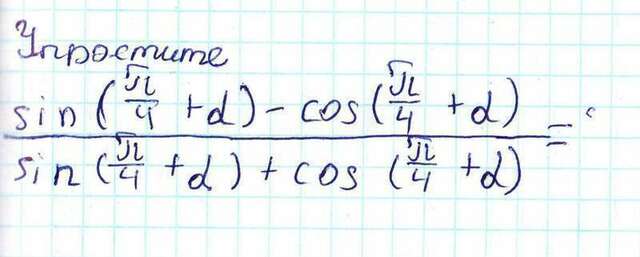 Упростите
sin (π/4 + α) - cos (π/4 + α)
sin (π/4 + α) + cos (π/4 + α) =